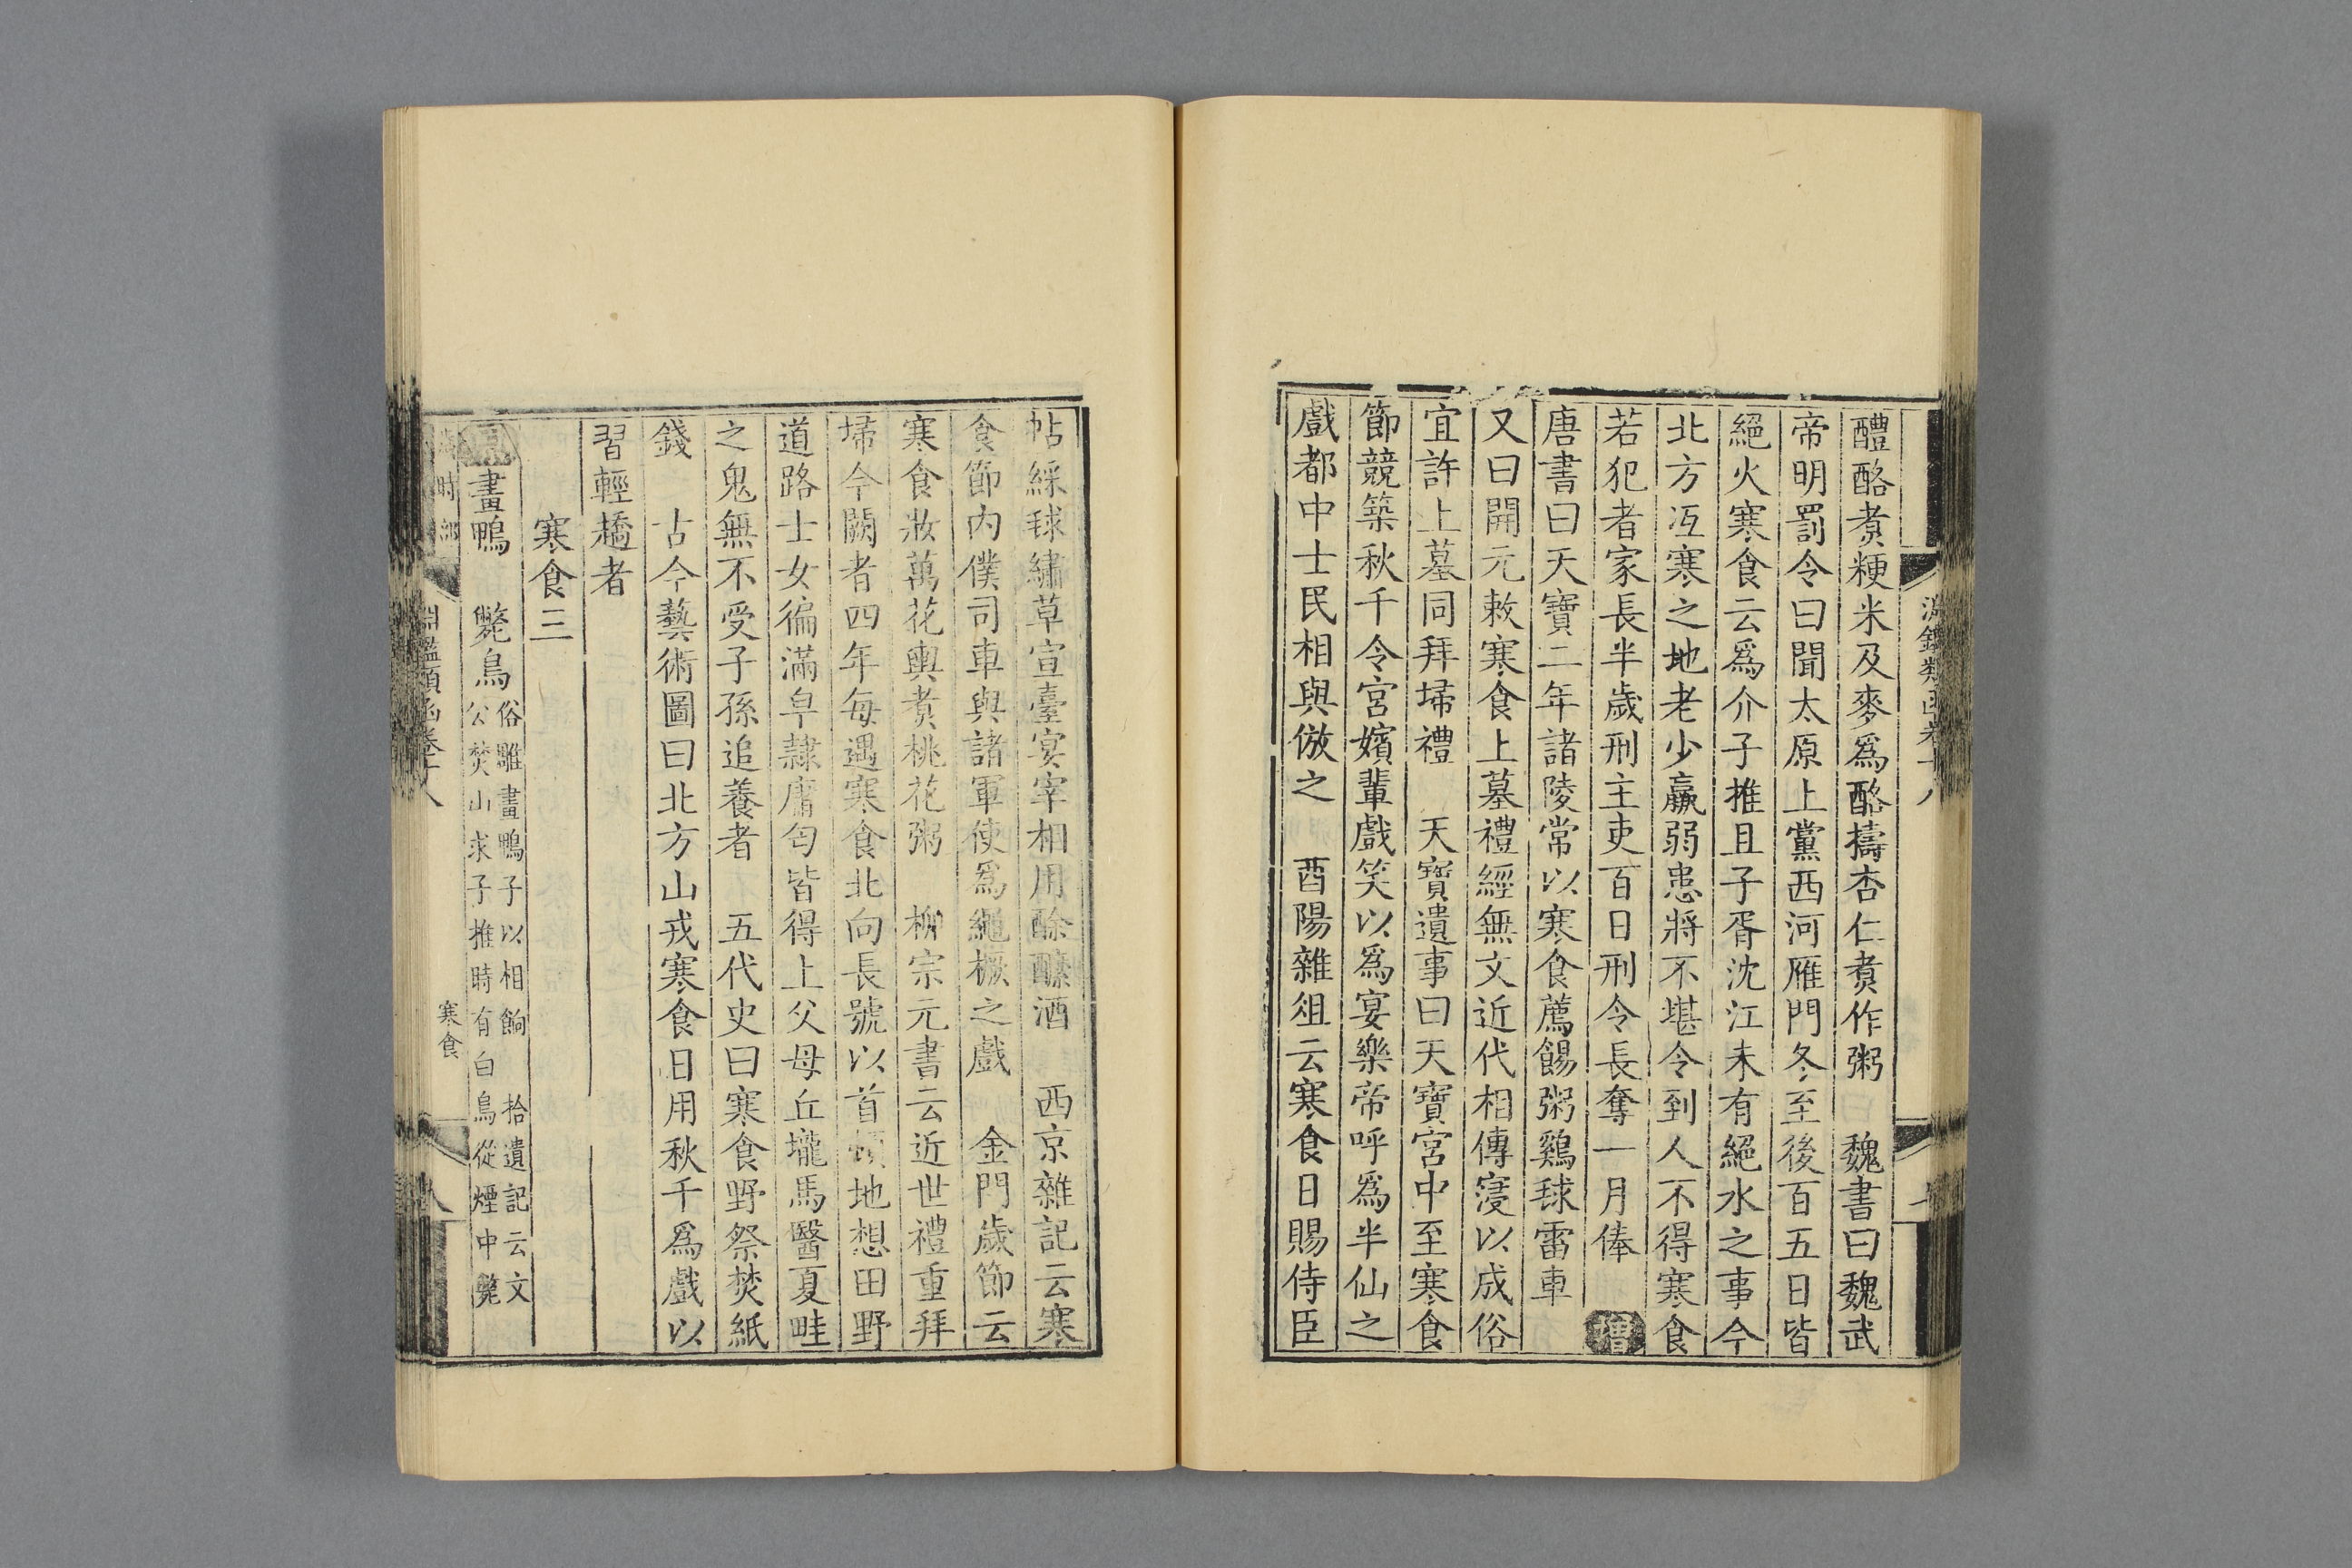 醴酪煑粳米及麥爲酪擣杏仁煑作粥　魏書曰魏武
帝明罰令曰聞太原上黨西河雁門冬至後百五日皆
絕火寒食云爲介子推且子胥沈江未有絕水之事令
北方沍寒之地老少羸弱患將不堪令到人不得寒食
若犯者家長半歲刑主吏百日刑令長奪一月俸　增
唐書曰天寶二年諸陵常以寒食薦餳粥鷄毬雷車
又曰開元敕寒食上墓禮經無文近代相傳寖以成俗
宜許上墓同拜埽禮　天寶遺事曰天寶宮中至寒食
節競築秋千令宮嬪輩戲笑以爲宴樂帝呼爲半仙之
戲都中士民相與倣之　酉陽雜俎云寒食日賜侍臣
帖綵毬繡草宣臺宴宰相用酴醾酒　西京雜記云寒
食節內僕司車與諸軍使爲繩橛之戲　金門歲節云
寒食妝萬花輿煑桃花粥　柳宗元書云近世禮重拜
埽今闕者四年每遇寒食北向長號以首頓地想田野
道路士女徧滿皁隸庸匄皆得上父母丘壠馬醫夏畦
之鬼無不受子孫追養者　五代史曰寒食野祭焚紙
錢　古今藝術圖曰北方山戎寒食日用秋千爲戲以
習輕趫者
寒食三
畫鴨　斃鳥
俗雕畫鴨子以相餉　拾遺記云文
公焚山求子推時有白鳥從煙中斃
時部
淵鑑類函卷十八
寒食
八